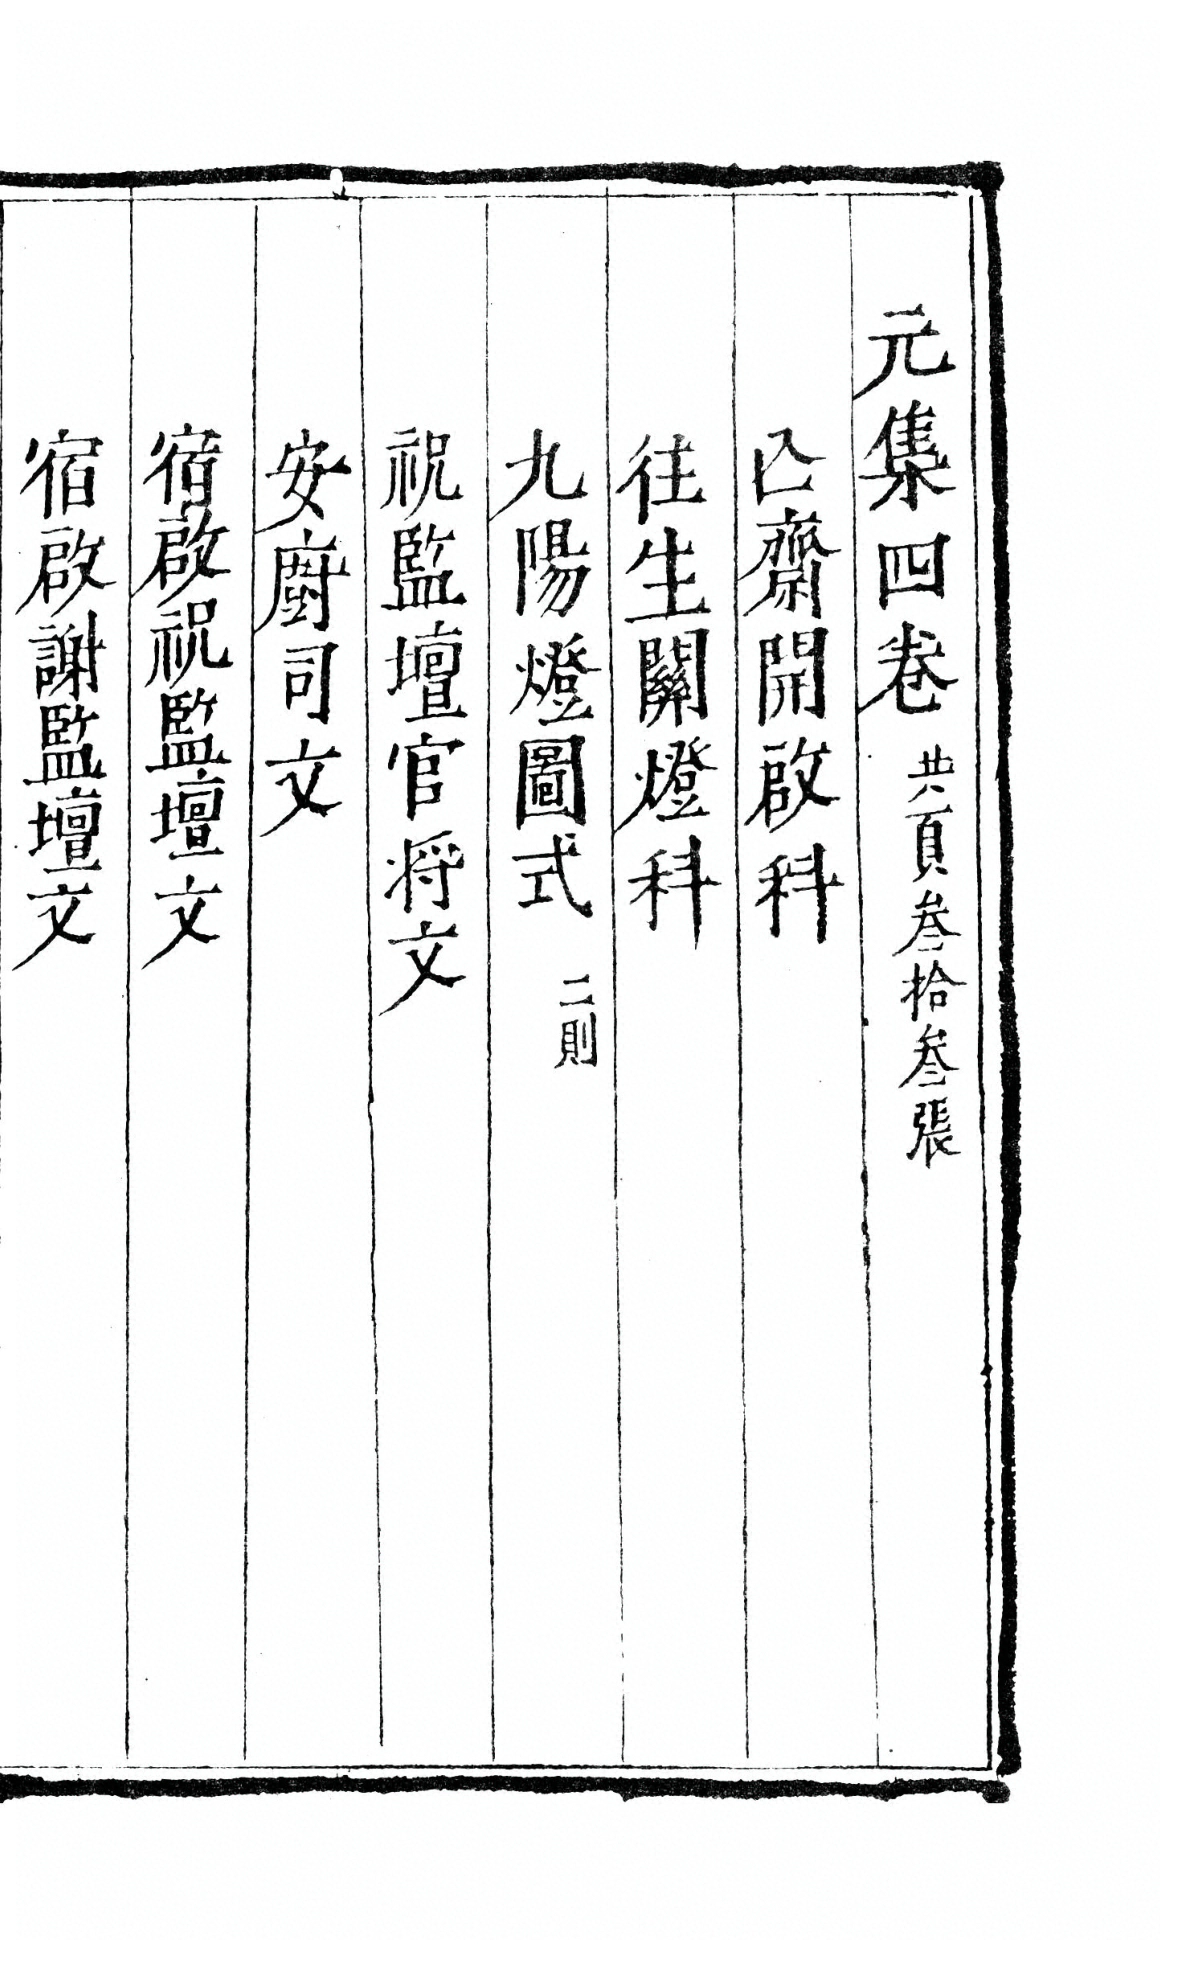 元集四卷 共一百叁拾叁張
亾齋開啟科
往生關燈科
九陽燈圖式 二則
祝監壇官将文
安廚司文
宿啟祝監壇文
宿啟謝監壇文